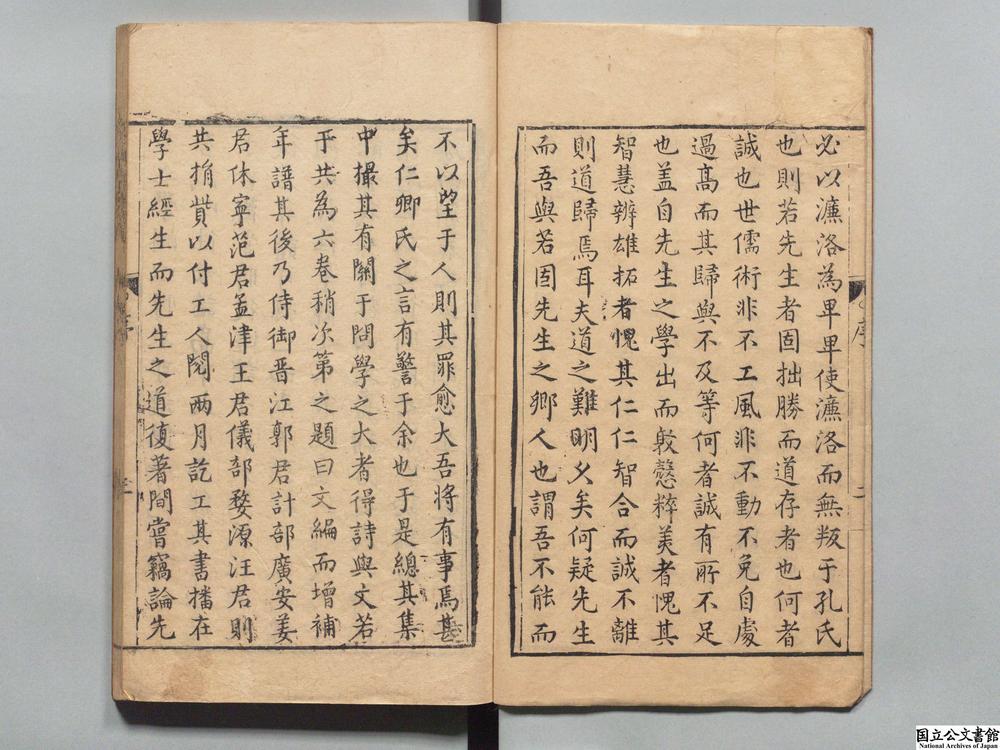 必以濂洛為卑卑使濂洛而無叛于孔氏
也則若先生者固拙勝而道存者也何者
誠也世儒術非不工風非不動不免自處
過高而其歸與不及等何者誠有所不足
也盖自先生之學出而敦慤粹美者愧其
智慧辨雄拓者愧其仁仁智合而誠不離
則道歸焉耳夫道之難明久矣何疑先生
而吾與若固先生之鄉人也謂吾不能而
序
二
不以望于人則其罪愈大吾將有事焉甚
矣仁卿氏之言有警于余也于是總其集
中撮其有關于問學之大者得詩與文若
于共為六卷稍次第之題曰文編而增補
年譜其後乃侍御晋江郭君計部廣安姜
君休寧范君孟津王君儀部婺源汪君則
共捐貲以付工人閱兩月訖工其書播在
學士經生而先生之道復著間嘗竊論先
序
国立公文書館
National Archives of Japan